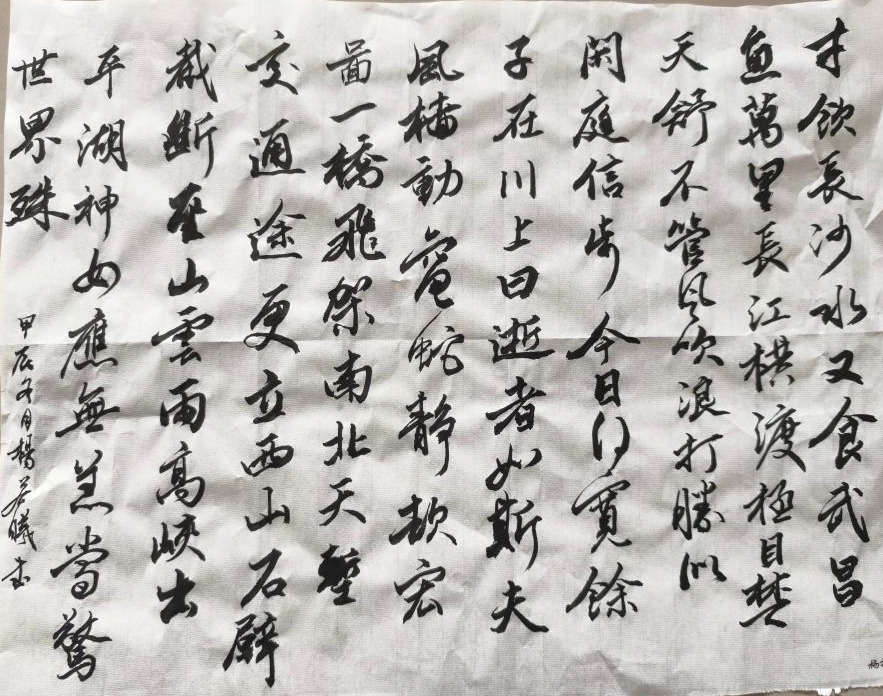 才飲長沙水又食武昌
魚萬里長江橫渡極目楚
天舒不管风吹浪打勝似
閑庭信步今日得寬餘
子在川上曰逝者如斯夫
風樯動龜蛇靜起宏
圖一橋飛架南北天塹
变通途更立西山石壁
截斷巫山雲雨高峽出
平湖神女應無恙當驚
世界殊
甲辰冬月楊若曦书